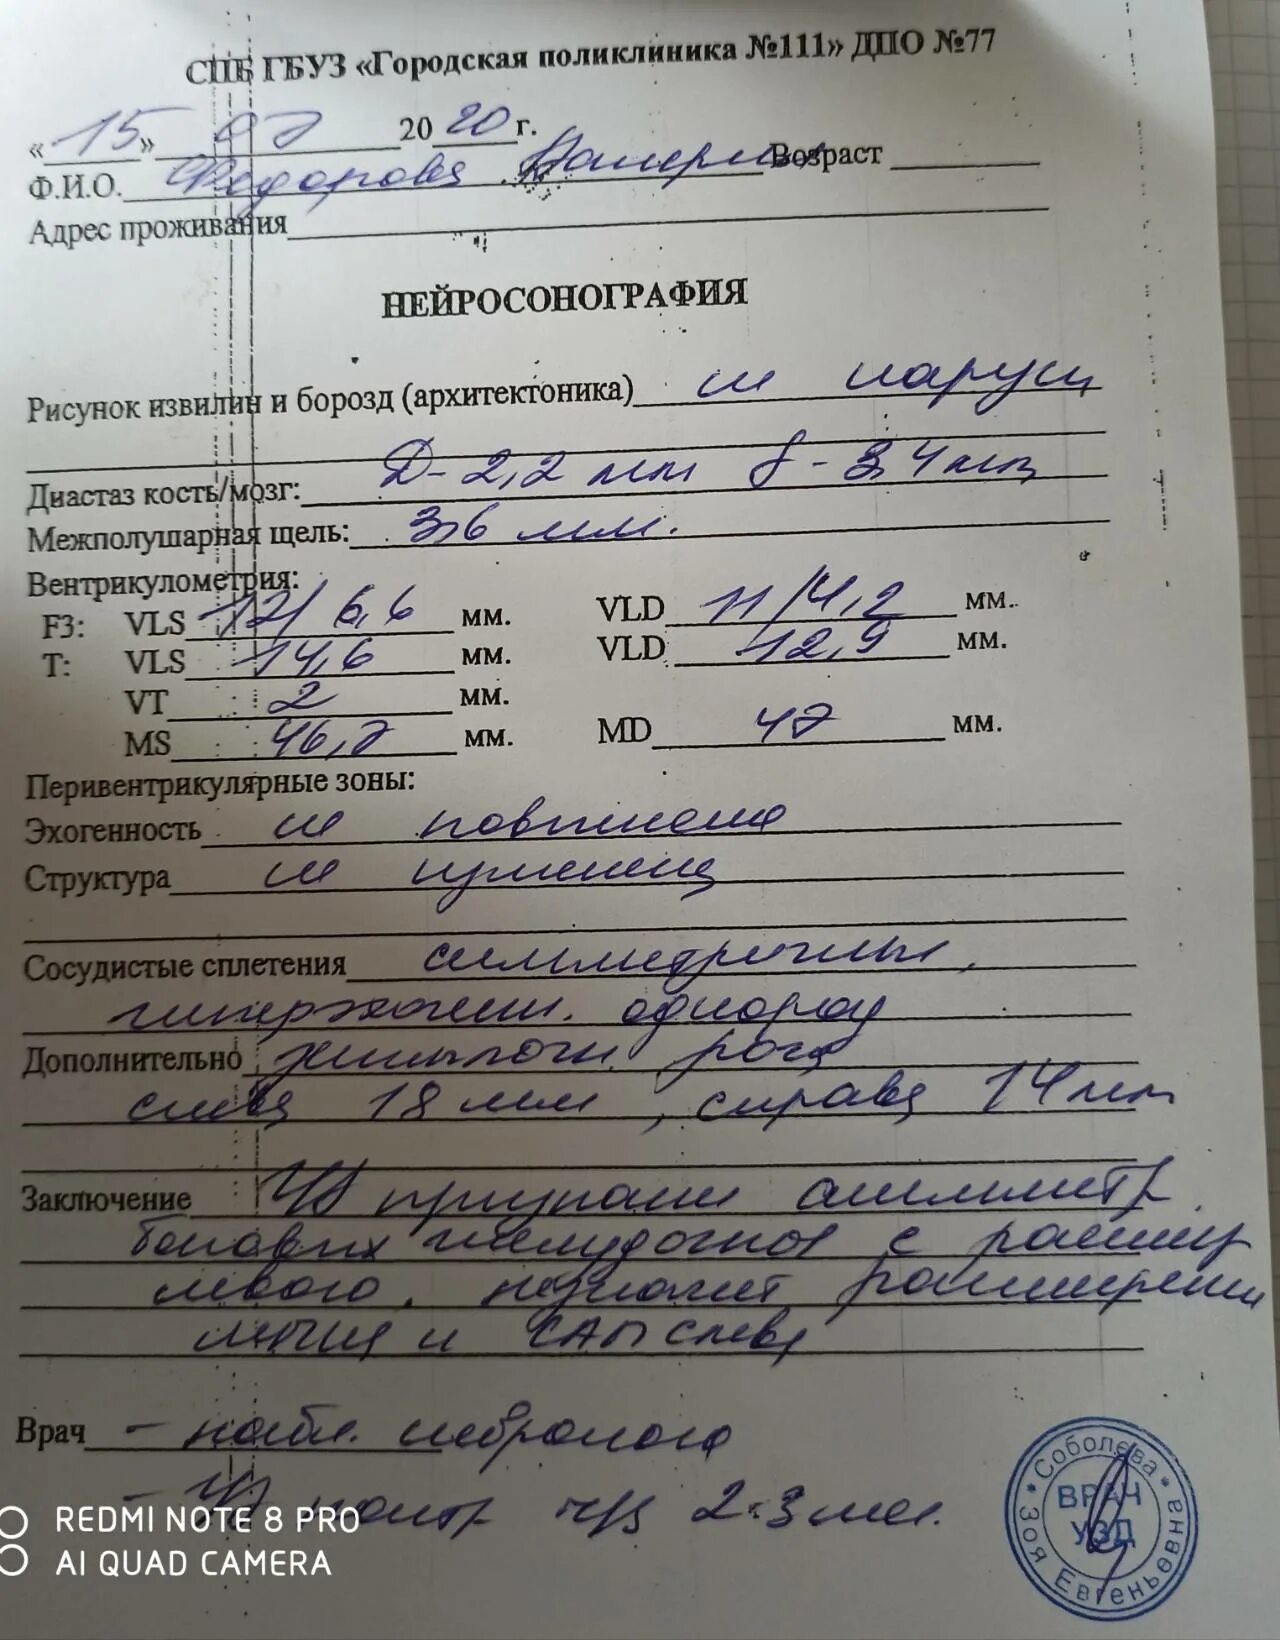 СПБ ГБУЗ «Городская поликлиника №111» ДПО №77
«15» 07 2020 г.
Ф.И.О. Федорова Валерия Возраст
Адрес проживания
НЕЙРОСОНОГРАФИЯ
Рисунок извилин и борозд (архитектоника) не наруш
Диастаз кость/мозг: Д-2,2 мм S-3,4 мм
Межполушарная щель: 3,6 мм.
Вентрикулометрия:
F3: VLS 12/6,6 мм. VLD 11/4,2 мм.
T: VLS 14,6 мм. VLD 12,9 мм.
VT 2 мм.
MS 46,7 мм. MD 47 мм.
Перивентрикулярные зоны:
Эхогенность не повышена
Структура не изменен
Сосудистые сплетения симметричны,
гиперэхоген. однород
Дополнительно затылочн. рога
слева 18 мм, справа 14 мм
Заключение УЗ признаки асимметр.
боковых желудочков с расшир
левого, незначит расширения
МПЩ и САП слева
Врач - набл. невролога
- УЗ контр чз 2-3 мес.
Соболева Зоя Евгеньевна
ВРАЧ
УЗД
REDMI NOTE 8 PRO
AI QUAD CAMERA